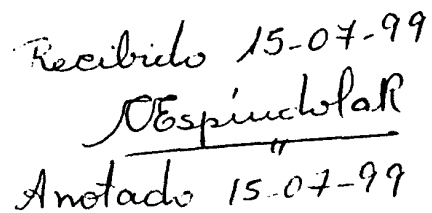 Recibido 15-07-99
OEspíndolaR
"
Anotado 15-07-99